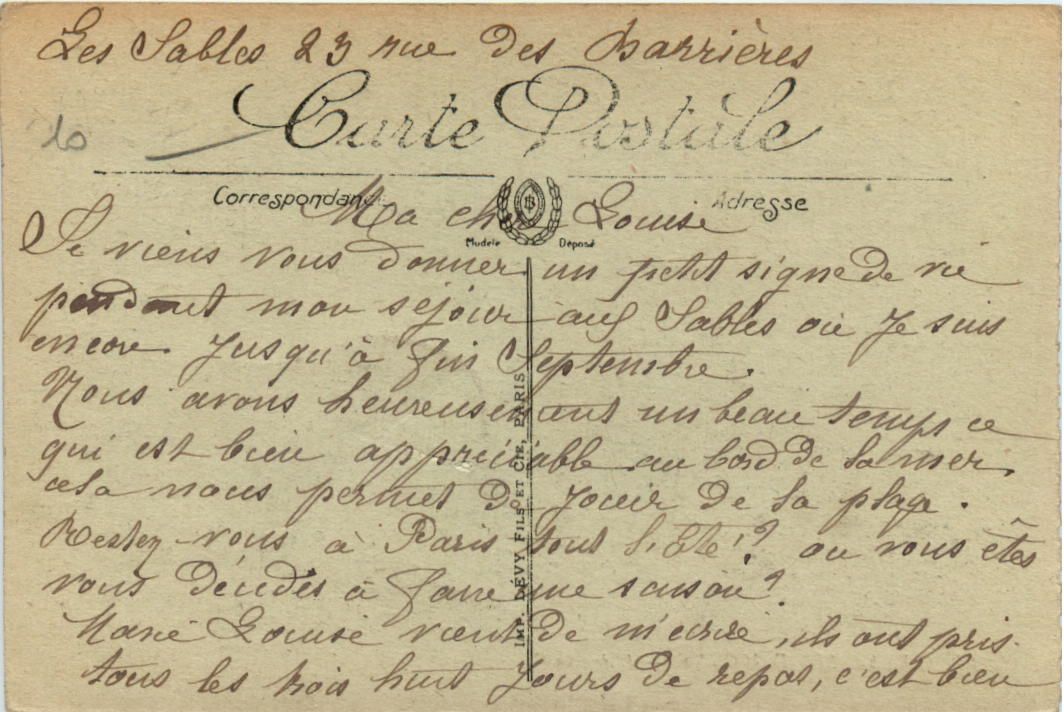 Les Sables 23 rue des Barrières
10
Carte Postale
Correspondance
Adresse
Ma chère Louise
Modèle Déposé
Je viens vous donner un petit signe de vie
pendant mon séjour aux Sables où je suis
encore jusqu'à fin Septembre.
Nous avons heureusement un beau temps ce
qui est bien appréciable au bord de la mer,
cela nous permet de jouir de la plage.
Restez vous à Paris tout l'Eté? ou vous êtes
vous décidés à faire une saison?
Marie Louise vient de m'écrire, ils ont pris
tous les trois huit jours de repos, c'est bien
IMP. LEVY FILS ET CIE, PARIS